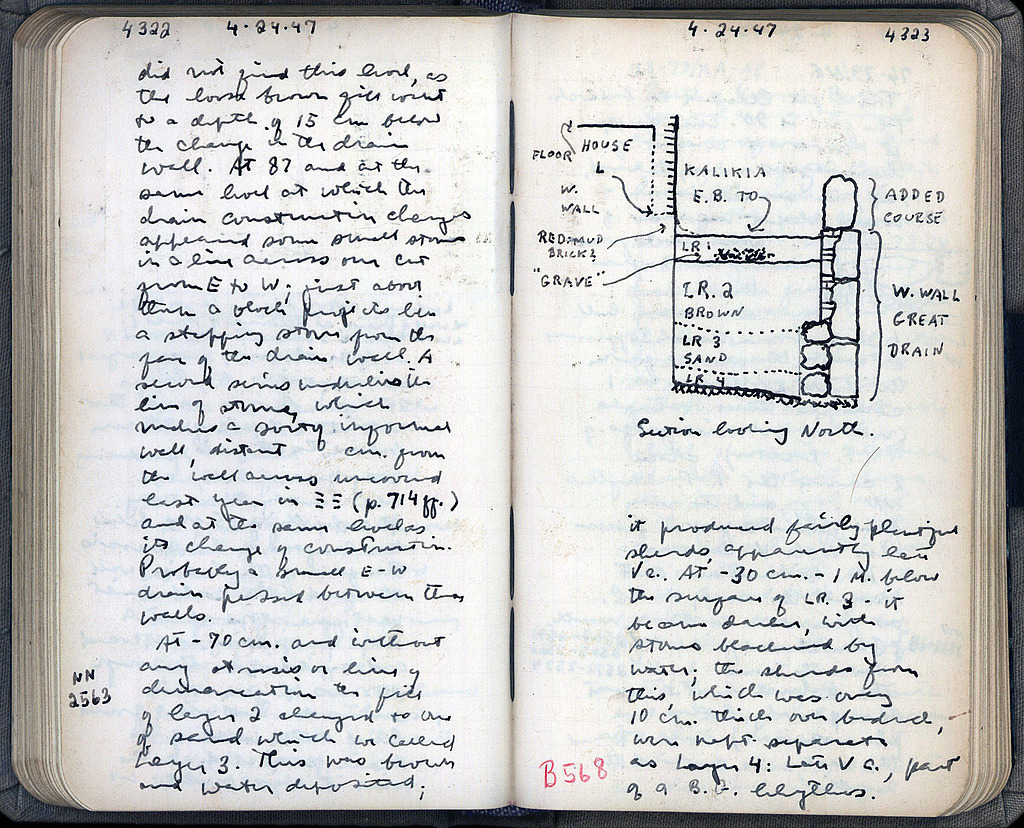 4322 4.24.47
did not find this level, as
the loose brown fill went
to a depth of 15 cm below
the change in the drain
wall. At 87 and at the
same level at which the
drain construction changes
appeared some small stones
in a line across our cut
from E to W; just above
them a block projects like
a stepping stone from the
face of the drain wall. A
second series underlies the
line of stones, which
makes a sorry informal
wall, distant cm. from
the wall across uncovered
last year in ΞΞ (p. 714 ff.)
and at the same level as
its change of construction.
Probably a small E-W
drain passed between these
walls.
At -70 cm. and without
any strosis or line of
demarcation the fill
NN
2563
of layer 2 changed to one
of sand which we called
Layer 3. This was brown
and water deposited;
4.24.47 4323
FLOOR HOUSE
L
W.
WALL
KALIKIA
E.B. TO
ADDED
COURSE
RED MUD
BRICK?
"GRAVE"
LR 1
LR. 2
BROWN
LR 3
SAND
LR 4
W. WALL
GREAT
DRAIN
Section looking North.
it produced fairly plentiful
sherds, apparently late
V c. At -30 cm. - 1 M. below
the surface of LR. 3 it
became darker, with
stones blackened by
water; the sherds from
this, which was only
10 cm. thick over bedrock,
were kept separate
as Layer 4: Late V c., part
of a B. G. lekythos.
B568